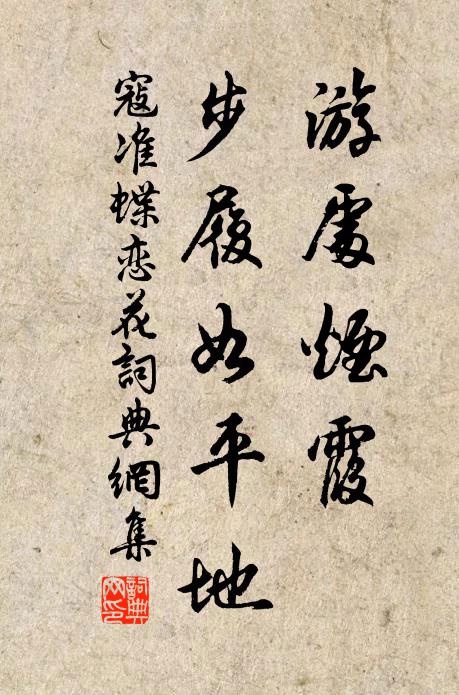 游處煙霞
步履如平地
寇准蝶恋花詞典網集
詞典网印